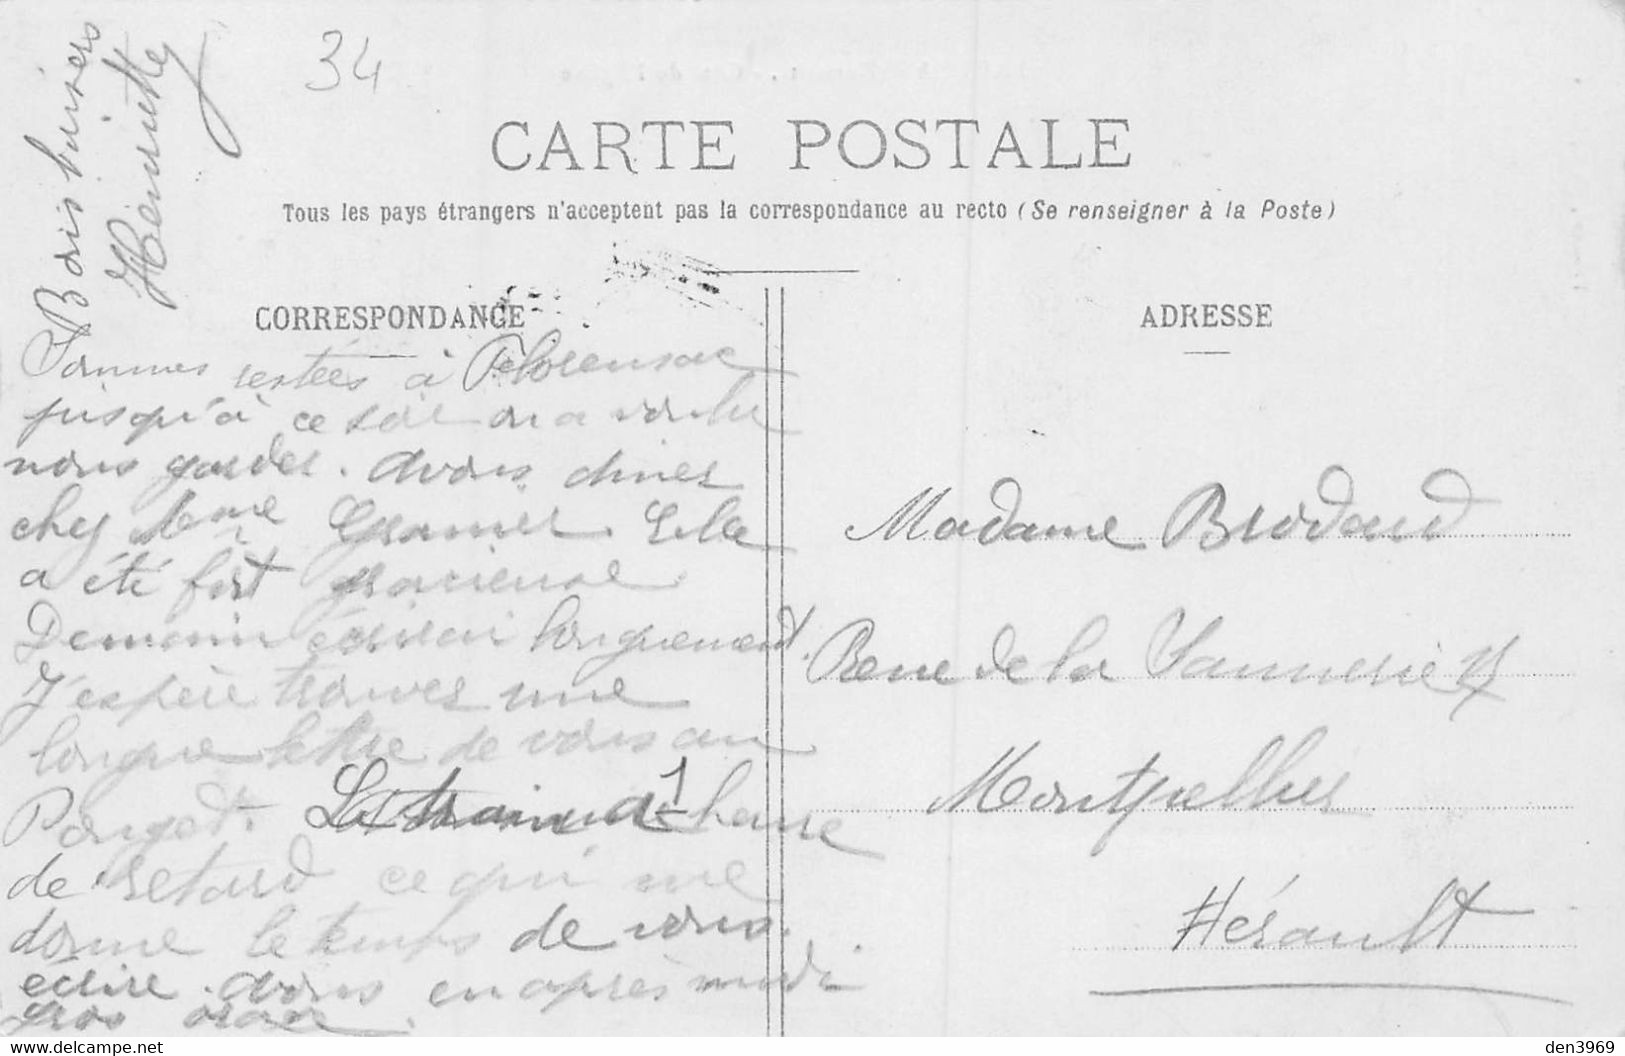 34
CARTE POSTALE
Tous les pays étrangers n'acceptent pas la correspondance au recto (Se renseigner à la Poste)
CORRESPONDANCE
Sommes restées à Florensac
jusqu'à ce soir on a voulu
nous garder. Avons diner
chez Mme Granier. Elle
a été fort gracieuse
Demain écrirai longuement.
J'espère trouver une
longue lettre de vous au
Pouget. Le train a 1 heure
de retard ce qui me
donne le temps de vous
écrire. Avons eu après midi
gros orage.
Bons baisers
Henriette
ADRESSE
Madame Brodard
Rue de la Vannerie
Montpellier
Hérault
den3969